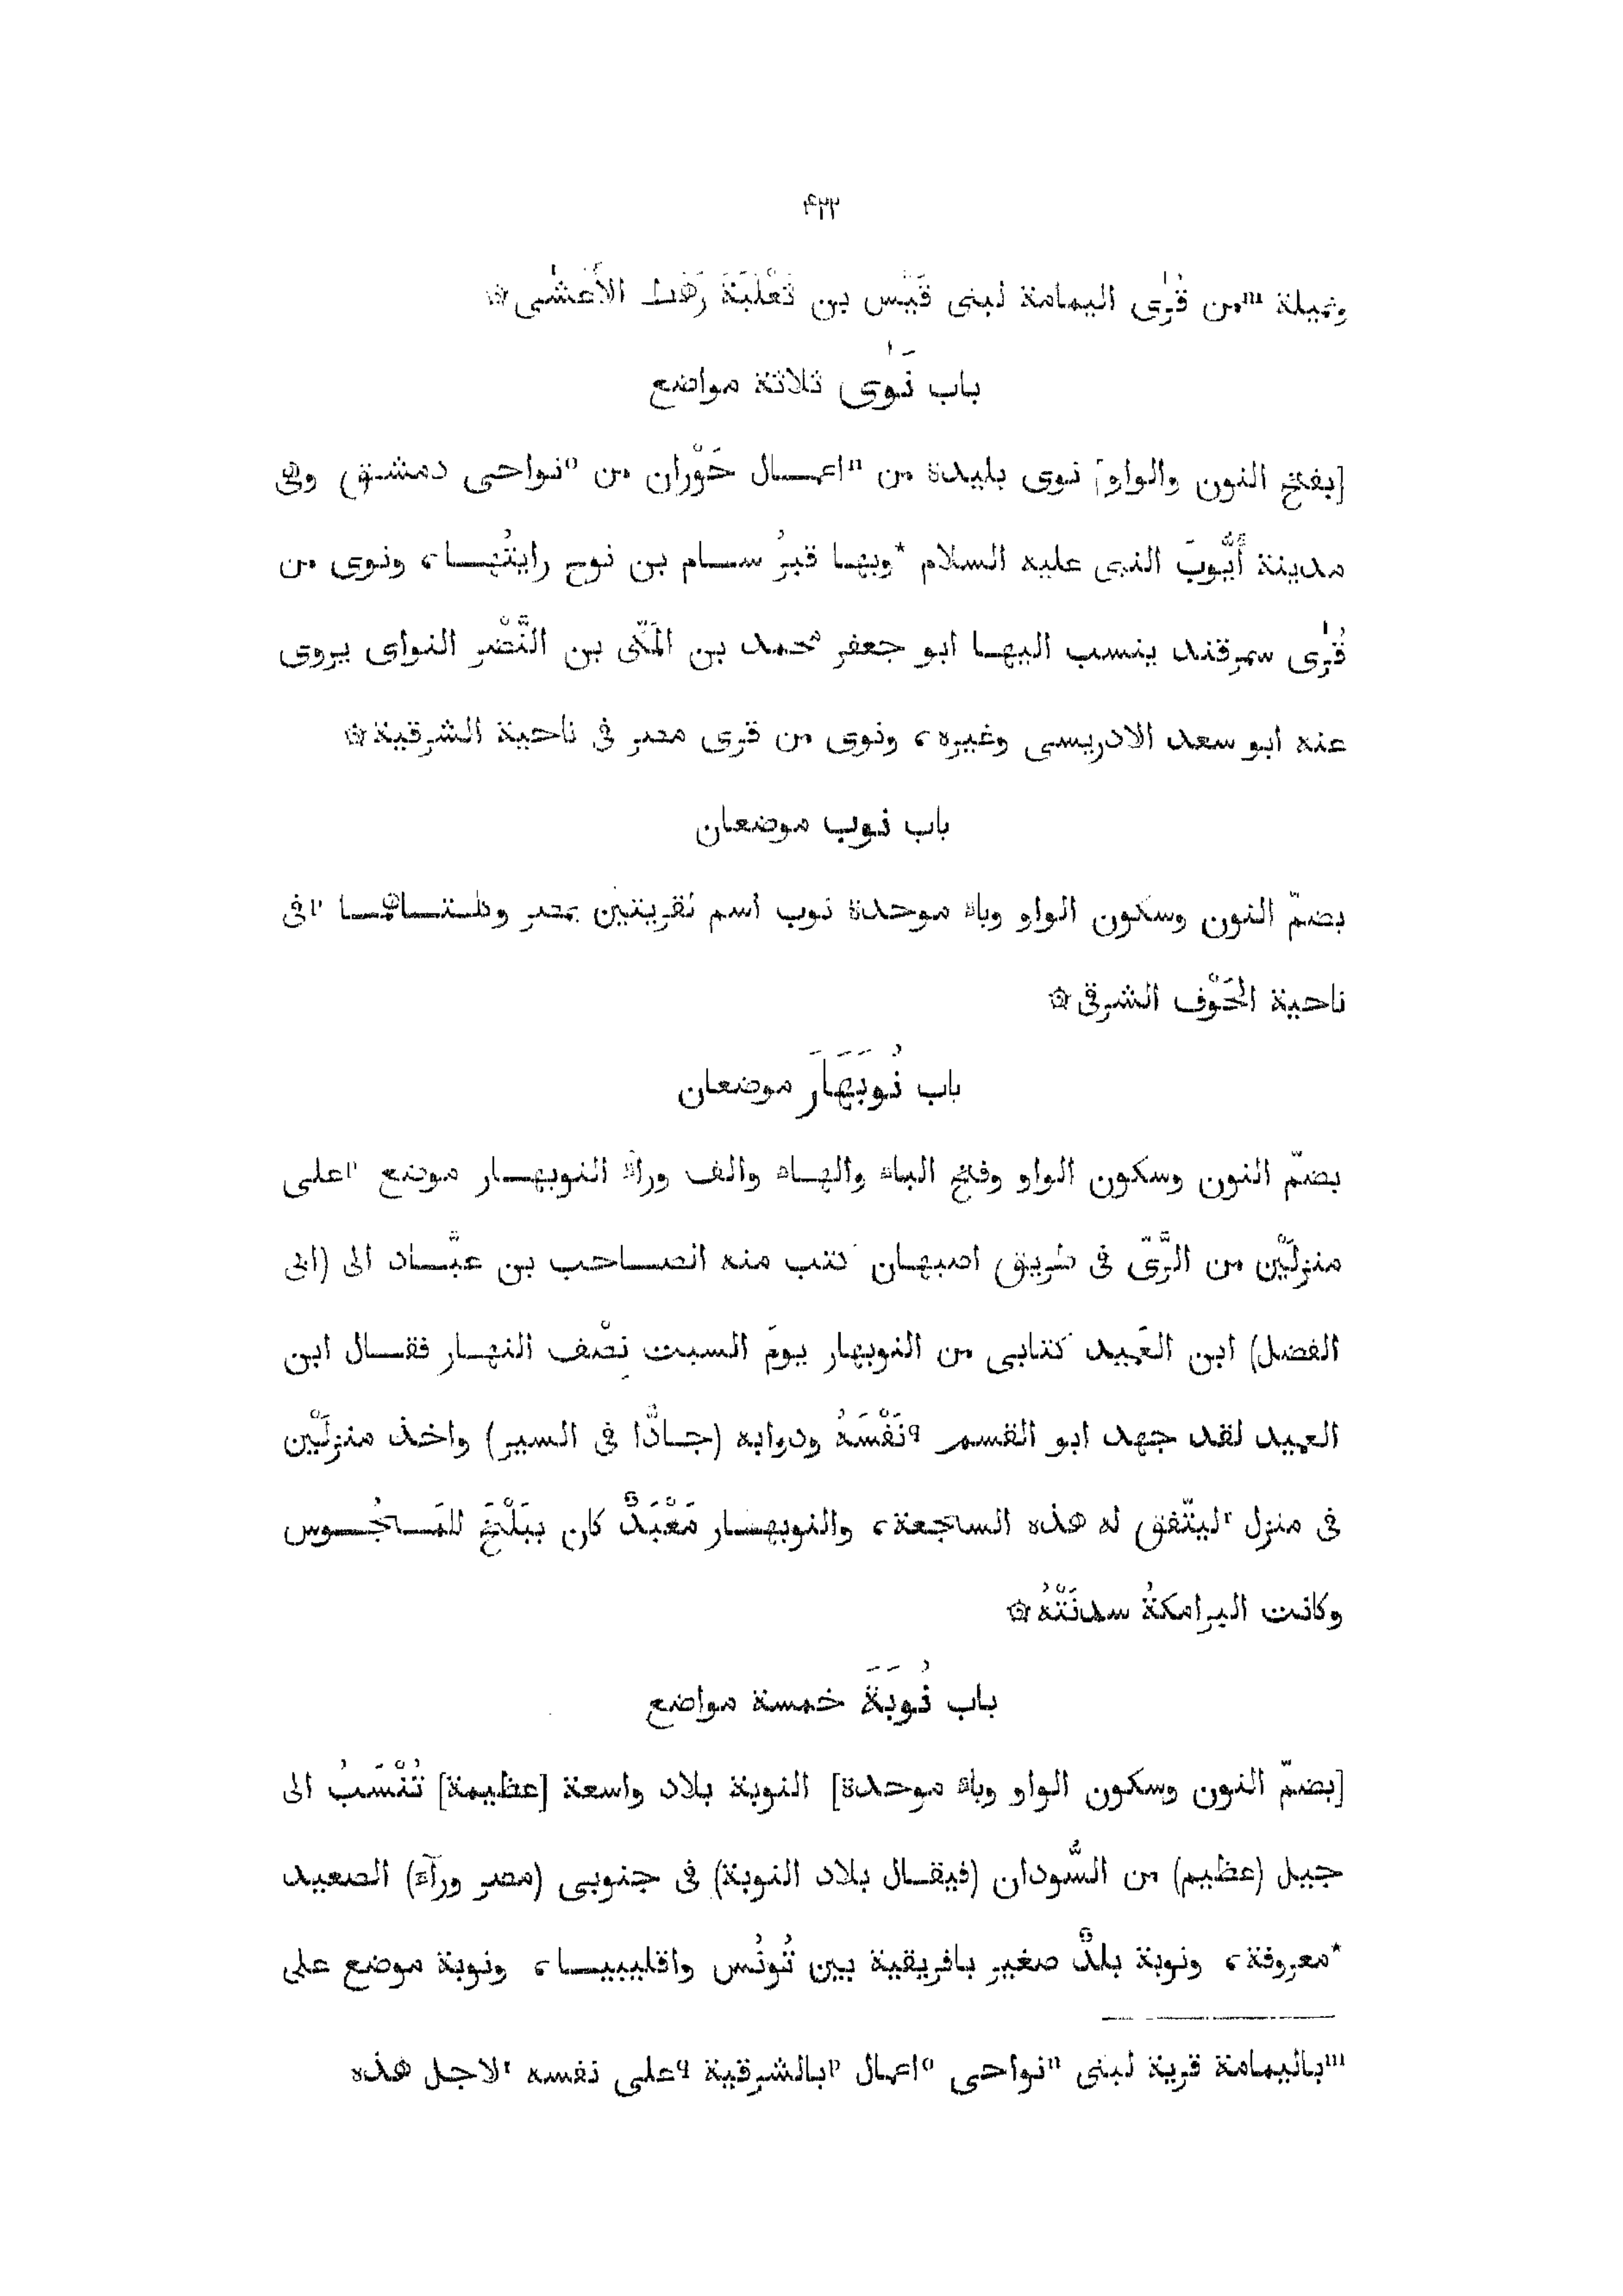 ۴۲۲
ونميلة ᵐمن قُرٰى اليمامة لبنى قَيْس بن ثَعْلَبَةَ رَهْط الأَعْشٰى ۞
باب نَوٰى ثلاثة مواضع
[بفتح النون والواو] نوى بليدة من ⁿاعمال حَوْران من ᵒنواحى دمشق وهى
مدينة أَيُّوبَ النبى عليه السلام *وبها قبرُ سام بن نوح رايتُها، ونوى من
قُرٰى سمرقند ينسب اليها ابو جعفر محمد بن المَكّى بن النَّضْر النواى يروى
عنه ابو سعد الادريسى وغيره، ونوى من قرى مصر فى ناحية الشرقية ۞
باب نوب موضعان
بضمّ النون وسكون الواو وباء موحدة نوب اسم لقريتين بمصر وكلتاهما ᵖفى
ناحية الحَوْف الشرقى ۞
باب نُوبَهَارَ موضعان
بضمّ النون وسكون الواو وفتح الباء والهاء والف وراء النوبهار موضع ᵖعلى
منزلَيْن من الرَّىّ فى طريق اصبهان كتب منه الصاحب بن عبَّاد الى (ابى
الفضل) ابن العَميد كتابى من النوبهار يومَ السبت نِصْف النهار فقال ابن
العميد لقد جهد ابو القسم ۹نَفْسَهُ ودوابه (جادًّا فى السير) واخذ منزلَيْن
فى منزل ʳليتّفق له هذه السجعة، والنوبهار مَعْبَدٌ كان ببَلْخَ للمَجُوس
وكانت البرامكةُ سدنَتْهُ ۞
باب نُوبَةَ خمسة مواضع
[بضمّ النون وسكون الواو وباء موحدة] النوبة بلاد واسعة [عظيمة] تُنْسَبُ الى
جيل (عظيم) من السُّودان (فيقال بلاد النوبة) فى جنوبى (مصر ورآء) الصعيد
*معروفة، ونوبة بلدٌ صغير بافريقية بين تُونُس واقليبيا، ونوبة موضع على
ᵐباليمامة قرية لبنى ⁿنواحى ᵒاعمال ᵖبالشرقية ۹على نفسه ʳلاجل هذه